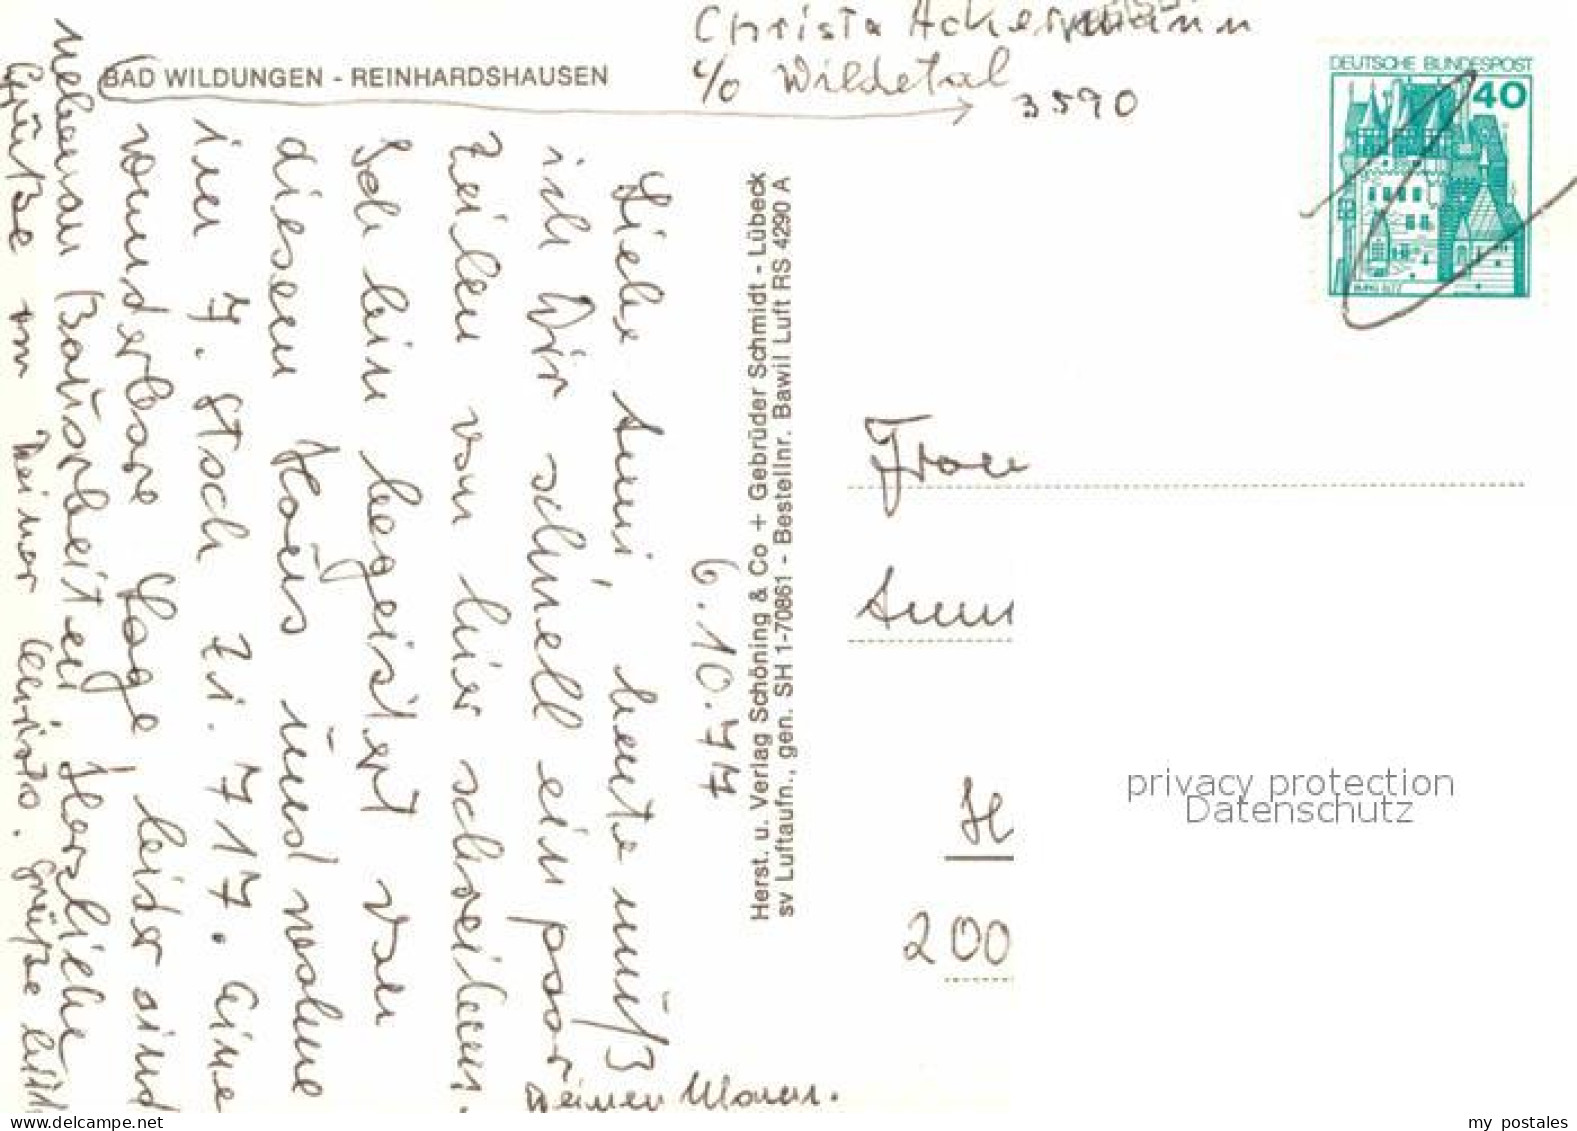 Christa Ackermann
c/o Wildetal
3590
BAD WILDUNGEN - REINHARDSHAUSEN
DEUTSCHE BUNDESPOST
40
BURG ELTZ
6.10.77
Liebe Anni, heute muß
ich Dir schnell ein paar
Zeilen von hier schreiben.
Ich bin begeistert von
diesem Haus und wohne
im 7. Stock Zi. 717. Eine
wunderbare Lage leider sind
nebenan Bauarbeiten. Herzliche
Grüße von Deiner Christa. Grüße bitte
Deinen Mann.
Herst. u. Verlag Schöning & Co + Gebrüder Schmidt - Lübeck
sv Luftaufn., gen. SH 1-70861 - Bestellnr. Bawil Luft RS 4290 A
Frau
Ann
H
200
privacy protection
Datenschutz
my postales